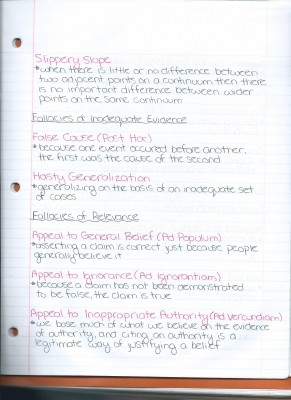 Slippery Slope
*when there is little or no difference between
two adjacent points on a continuum then there
is no important difference between wider
points on the same continuum
Fallacies of Inadequate Evidence
False Cause (Post Hoc)
*because one event occured before another,
the first was the cause of the second
Hasty Generalization
*generalizing on the basis of an inadequate set
of cases
Fallacies of Relevance
Appeal to General Belief (Ad Populum)
*asserting a claim is correct just because people
generally believe it
Appeal to Ignorance (Ad Ignorantiam)
*because a claim has not been demonstrated
to be false, the claim is true
Appeal to Inappropriate Authority (Ad Verecundiam)
*we base much of what we believe on the evidence
of authority, and citing an authority is a
legitimate way of justifying a belief